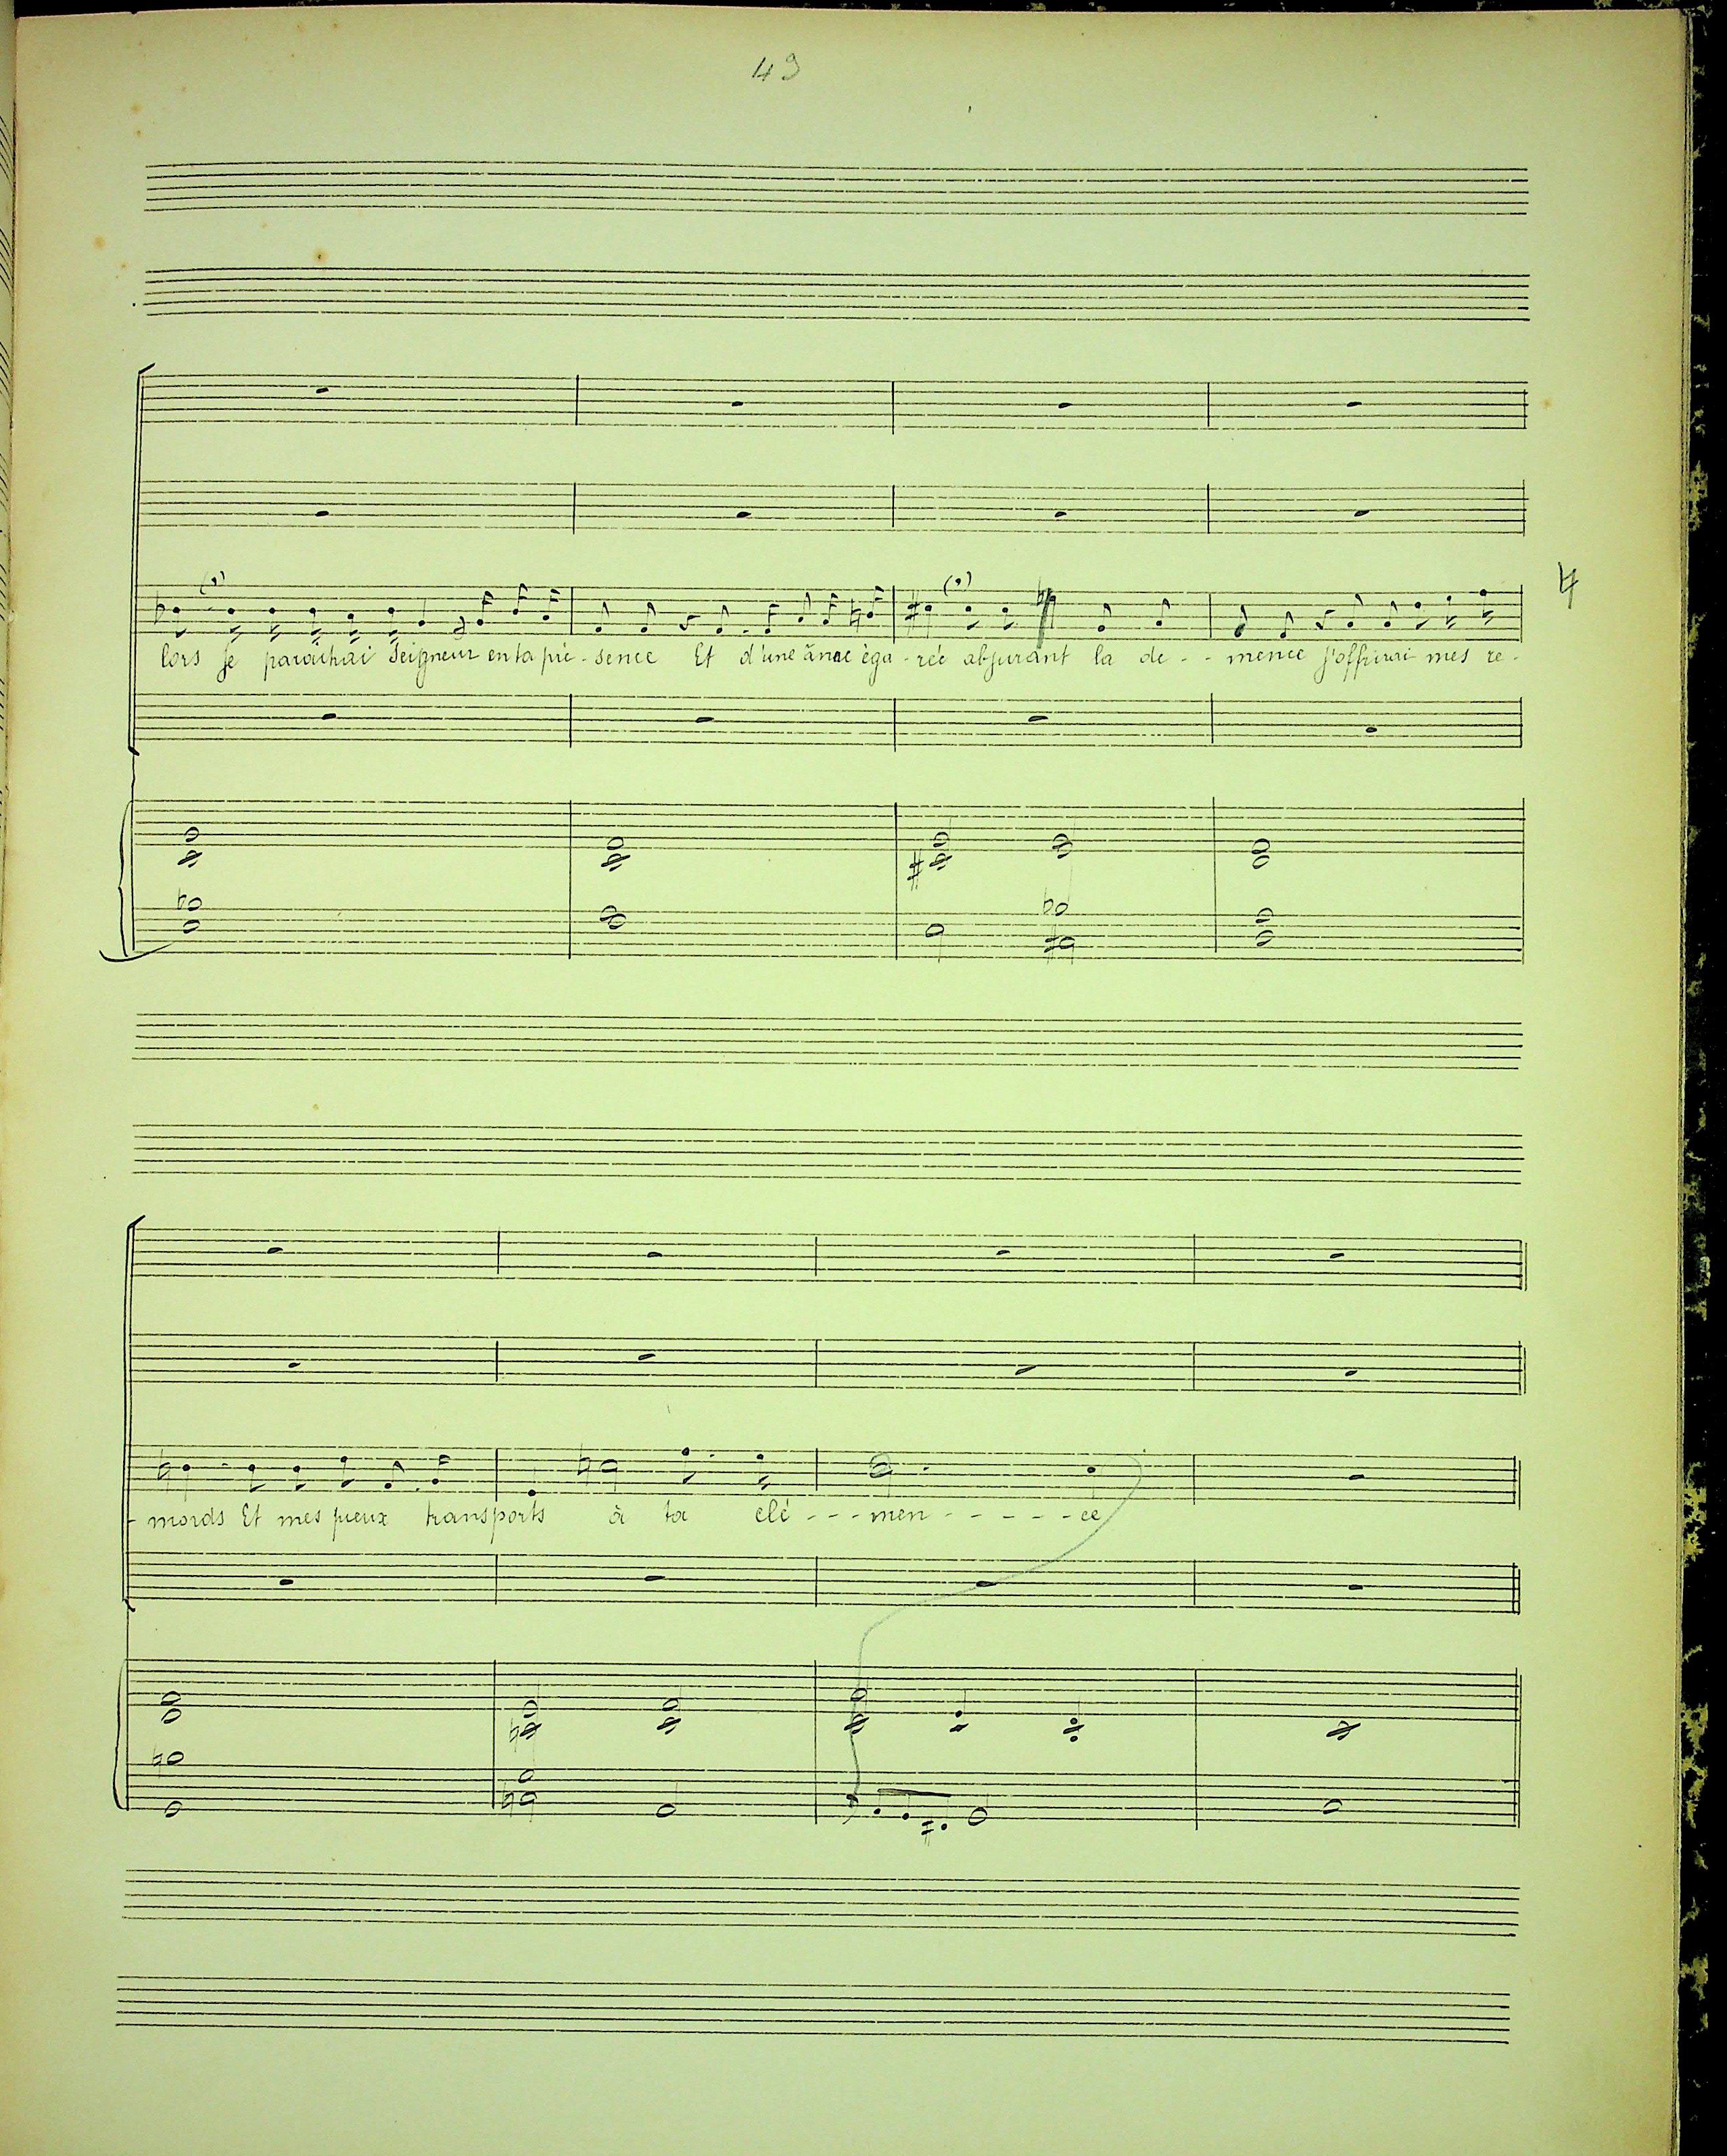 49
lors je paraîtrai Seigneur en ta pré - sence Et d'une âme éga - rée abjurant la de - - mence j'offrirai mes re -
- mords Et mes pieux transports à ta clé - - - men - - - - - ce